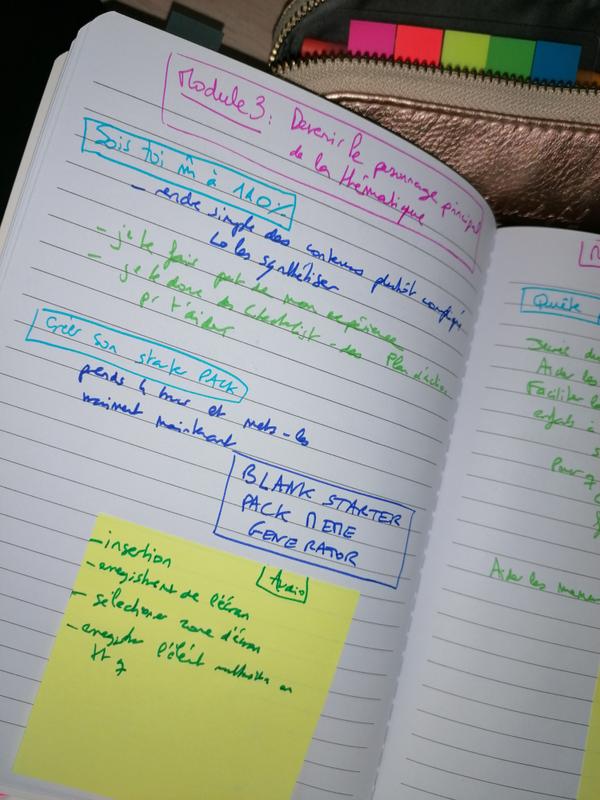 Module 3 : Devenir le personnage principal
de la thématique
Sois toi m̂ à 110%
- rendre simple des contenus plutôt compliqués
↳ les synthétiser
- je te fais part de mon expérience
- je te donne des Checklist - des Plan d'action
pr t'aider
Créer son starter PACK
prends 4 trucs et mets-les
vraiment maintenant
BLANK STARTER
PACK MEME
GENERATOR
Audio
- insertion
- enregistrement de l'écran
- sélectionner zone d'écran
- enregistrer l'élémt multimédia en
Quête
Aider les
Faciliter le
enfants à
Pour q
Aider les maman